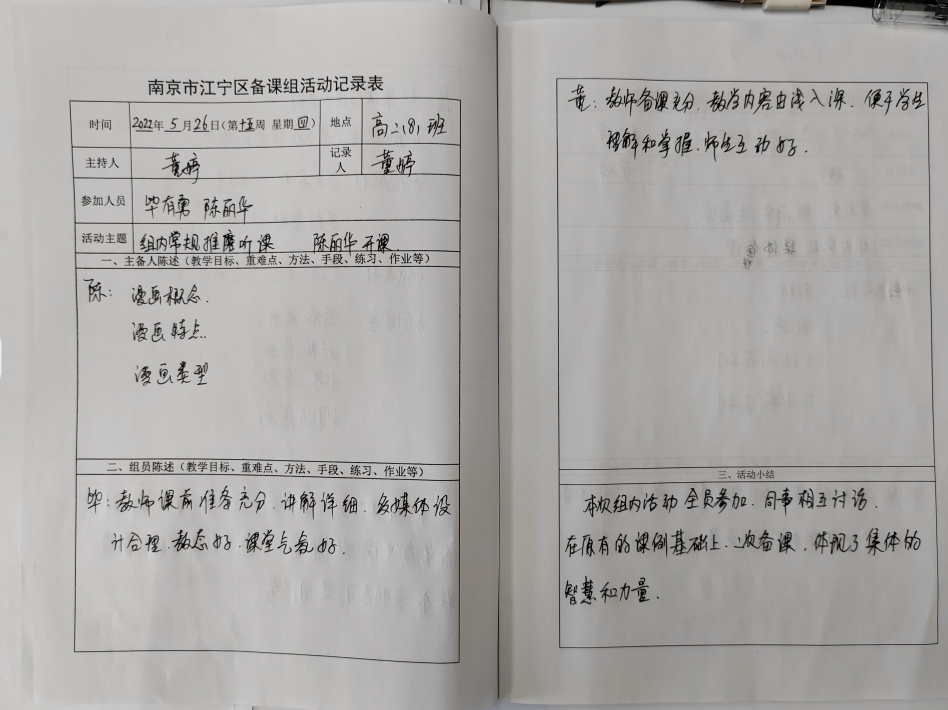 南京市江宁区备课组活动记录表
时间 2022年5月26日(第十五周 星期四) 地点 高二(8)班
主持人 董婷 记录人 董婷
参加人员 毕有勇 陈丽华
活动主题 组内常规推磨听课 陈丽华开课.
一、主备人陈述(教学目标、重难点、方法、手段、练习、作业等)
陈: 漫画概念.
漫画特点.
漫画类型
二、组员陈述(教学目标、重难点、方法、手段、练习、作业等)
毕: 教师课前准备充分.讲解详细.多媒体设
计合理.教态好.课堂气氛好.
董: 教师备课充分.教学内容由浅入深.便于学生
理解和掌握.师生互动好.
三、活动小结
本次组内活动全员参加.同事相互讨论.
在原有的课例基础上.二次备课.体现了集体的
智慧和力量.